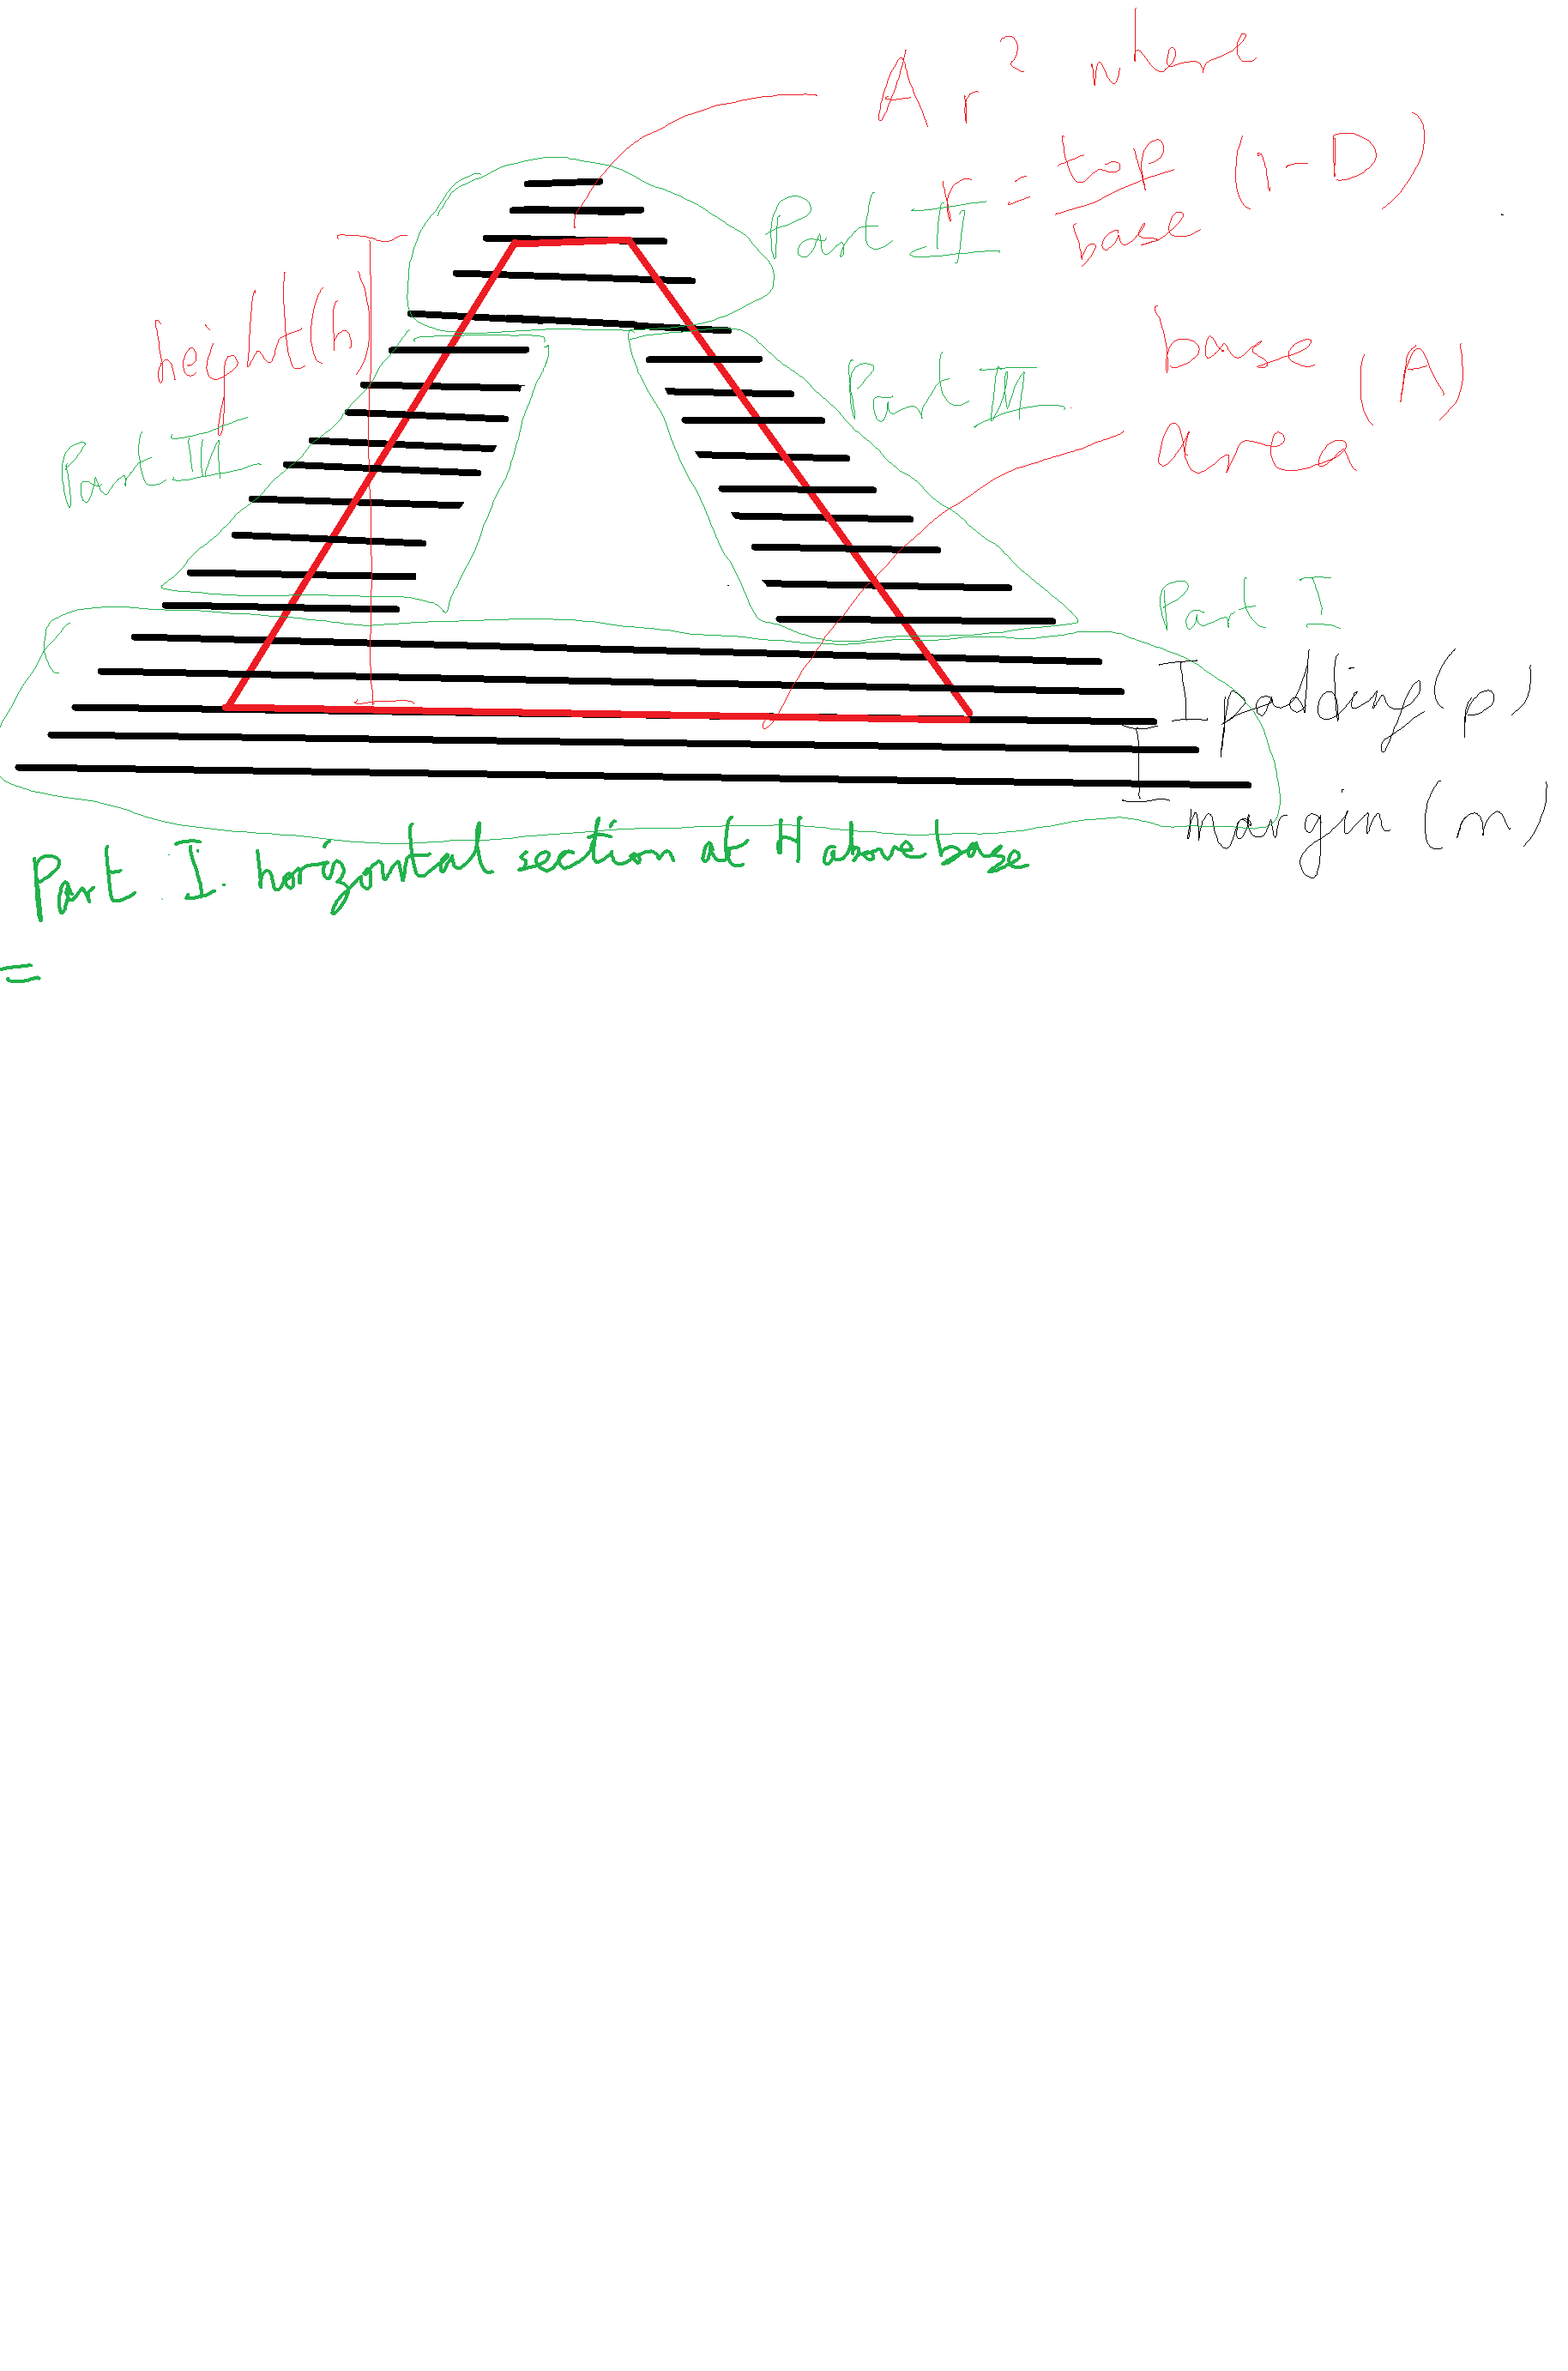 A r² where
r = top/base (1-D)
Part II
height(h)
base (A)
area
Part III
Part III
Part I
padding(p)
margin(m)
Part I. horizontal section at H above base
=